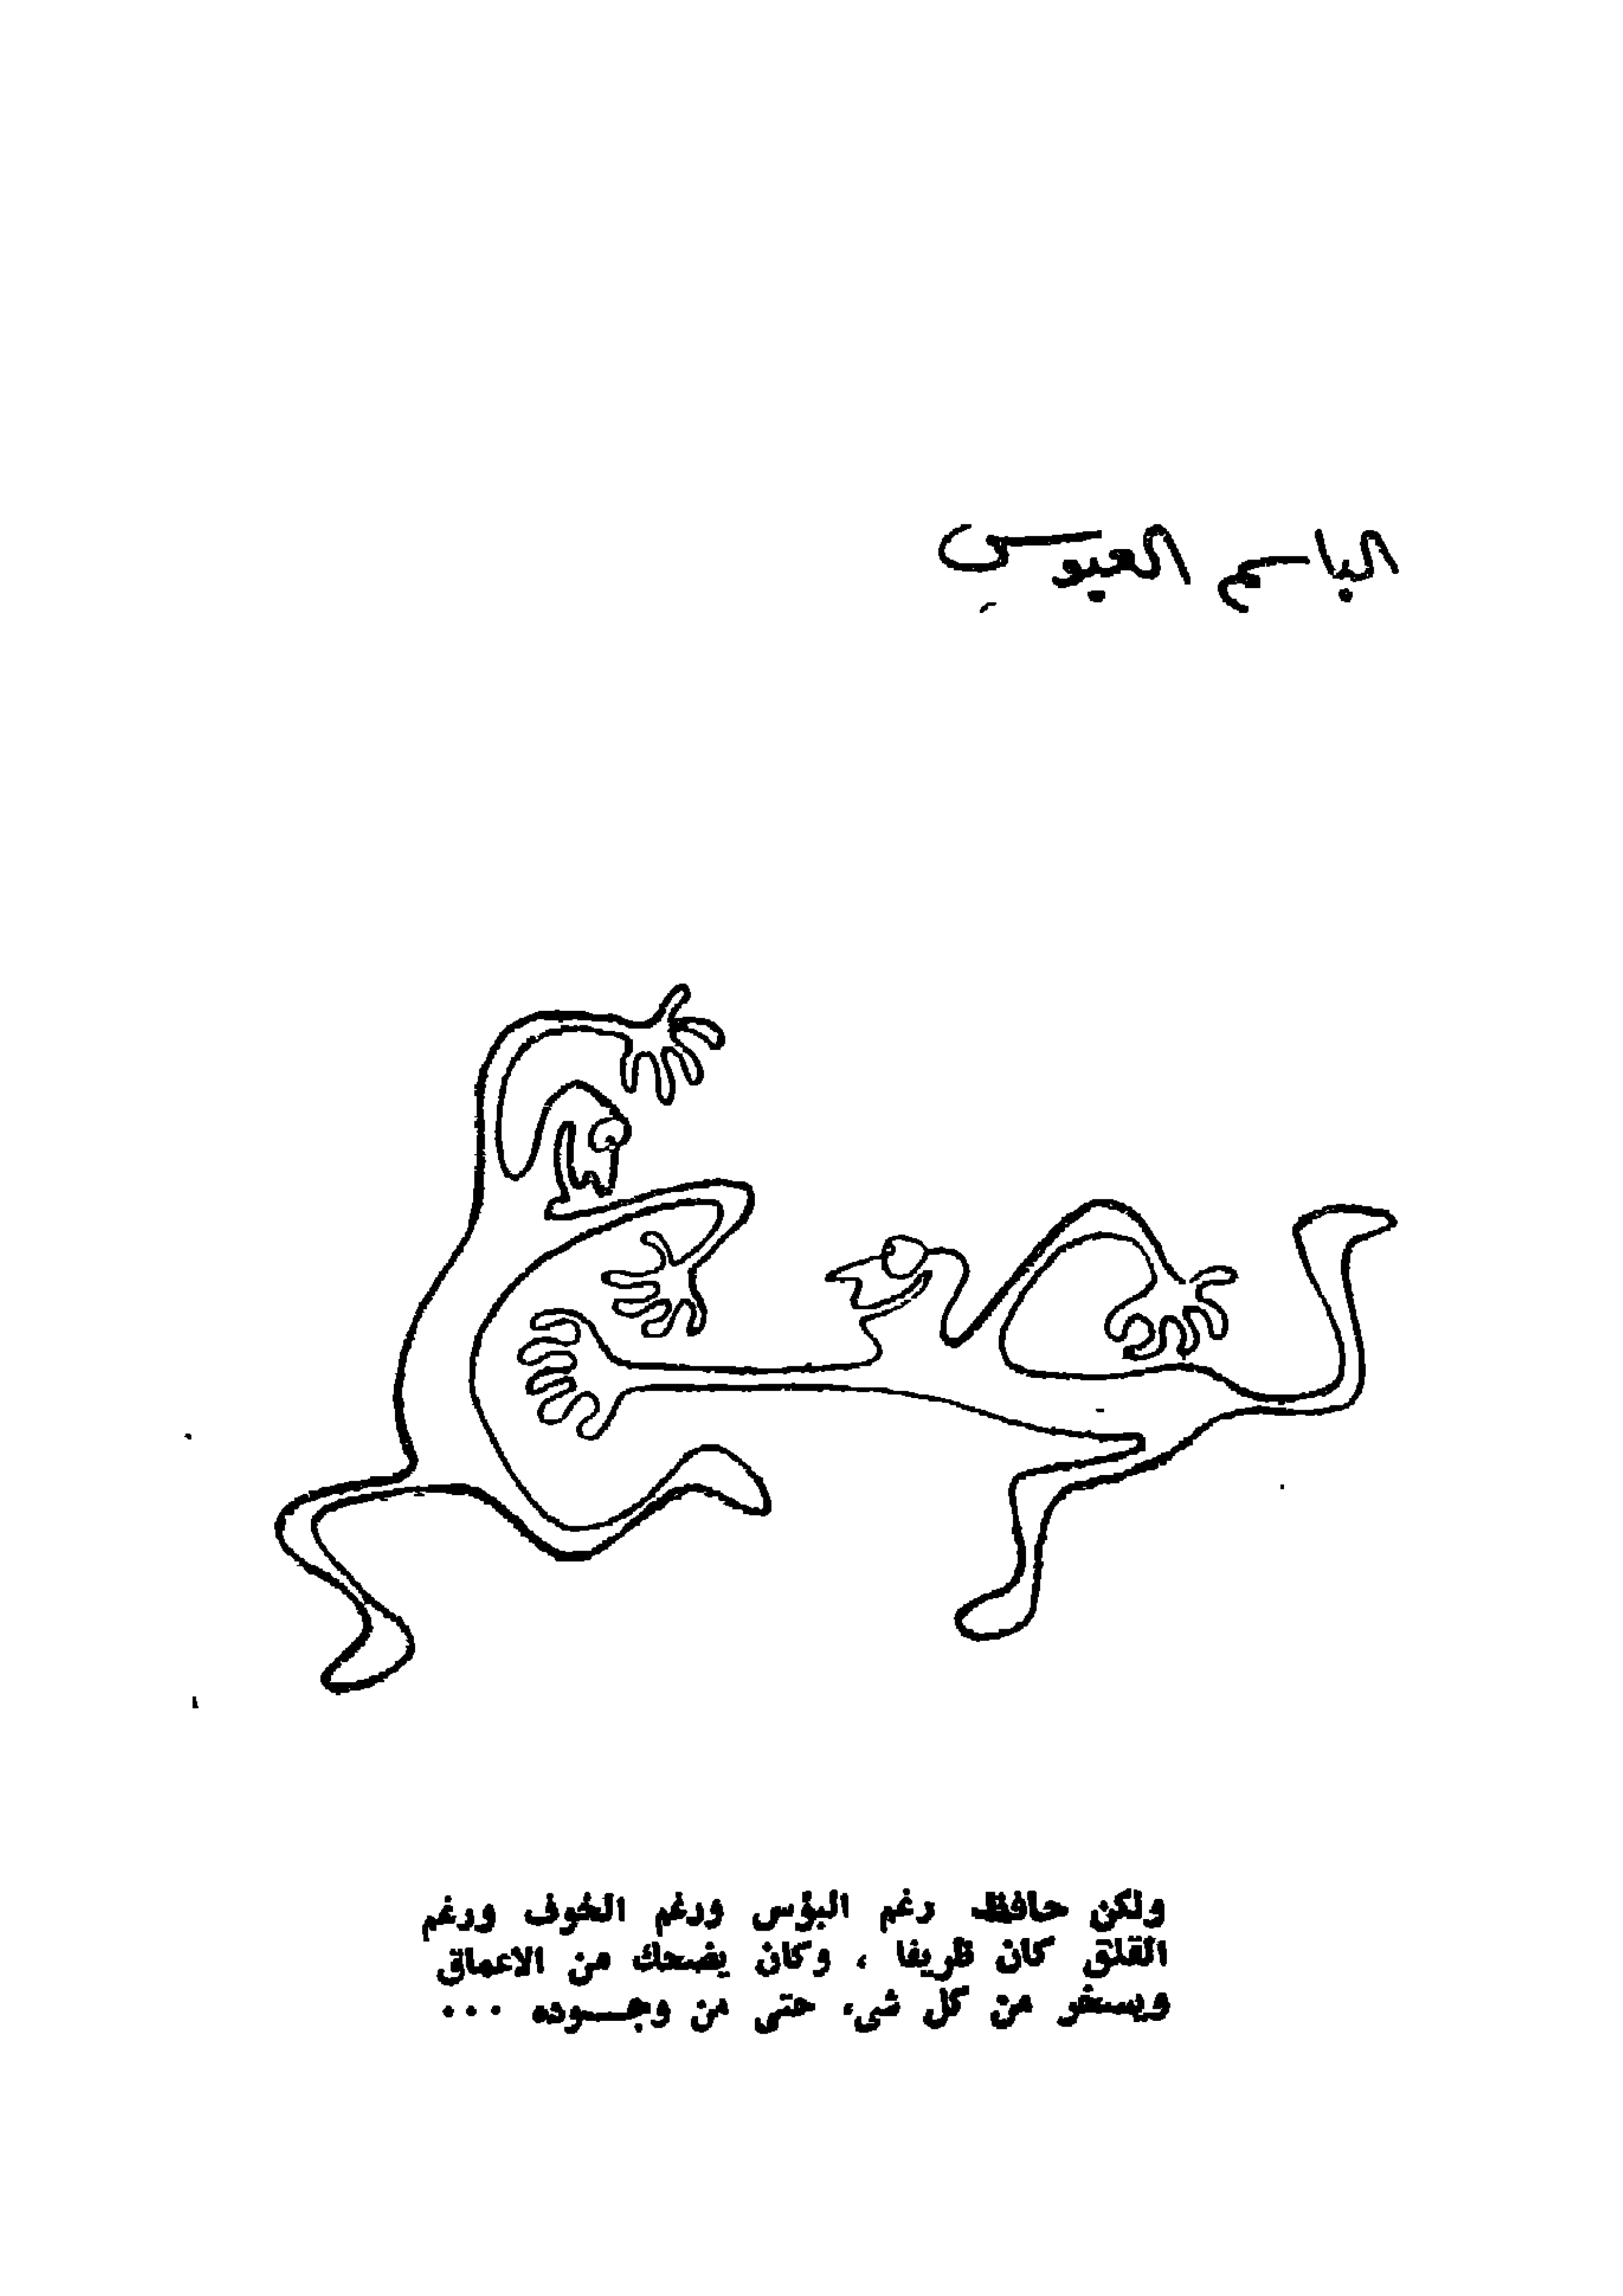 الباسم العبوس
ولكن حافظ رغم البؤس ورغم الخوف ورغم
القلق كان ظريفا ، وكان يضحك من الاعماق
ويسخر من كل شيء حتى من وجـــوده ...